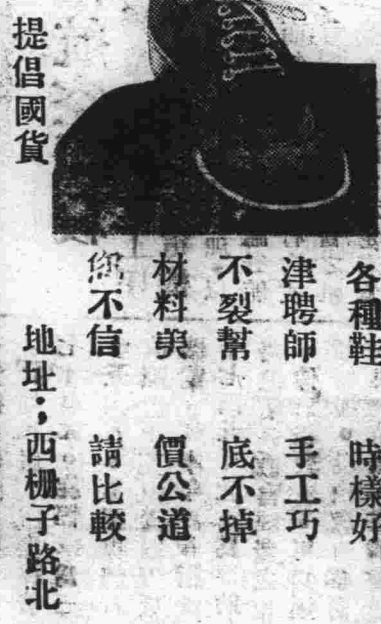 各種鞋　時樣好
津聘師　手工巧
不裂幫　底不掉
材料美　價公道
您不信　請比較
地址；西柵子路北
提倡國貨